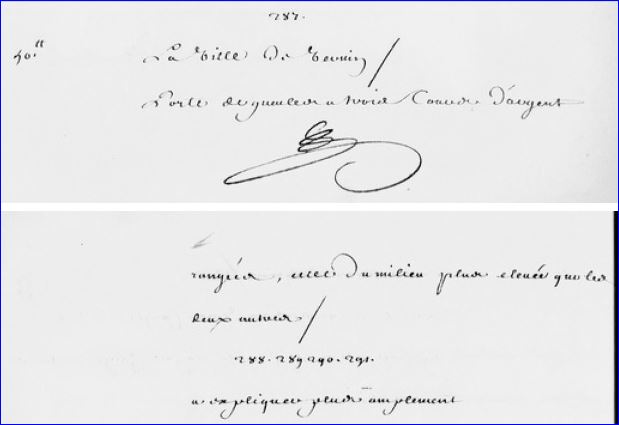 287.
50.tt
La Ville de Vervin /
Porte de gueules a trois Tours d'argent
rangées, celle du milieu plus elevée que les
deux autres /
288. 289 290. 291.
a expliquer plus amplement